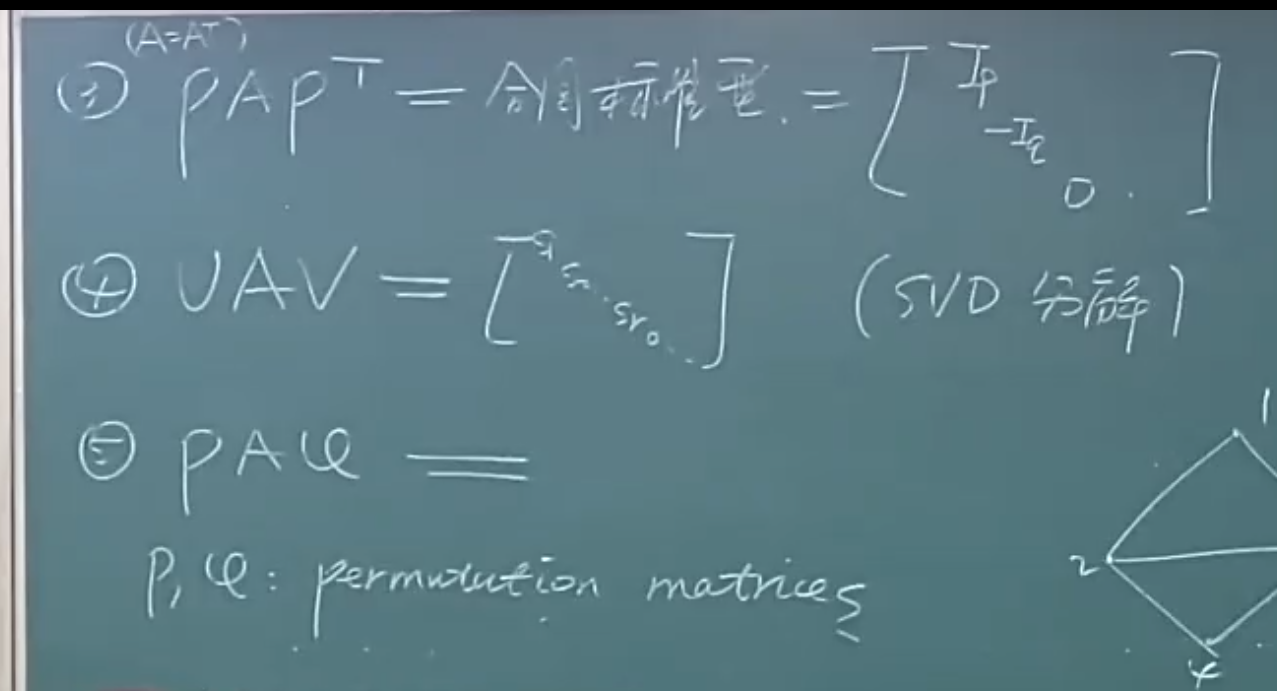 (A=Aᵀ)
③ PAPᵀ = 合同标准型. = [ Ip -Iq 0 ]
④ UAV = [ S1 S2 ... Sr 0 ... ] (SVD 分解)
⑤ PAQ =
P, Q: permutation matrices
1
2
4